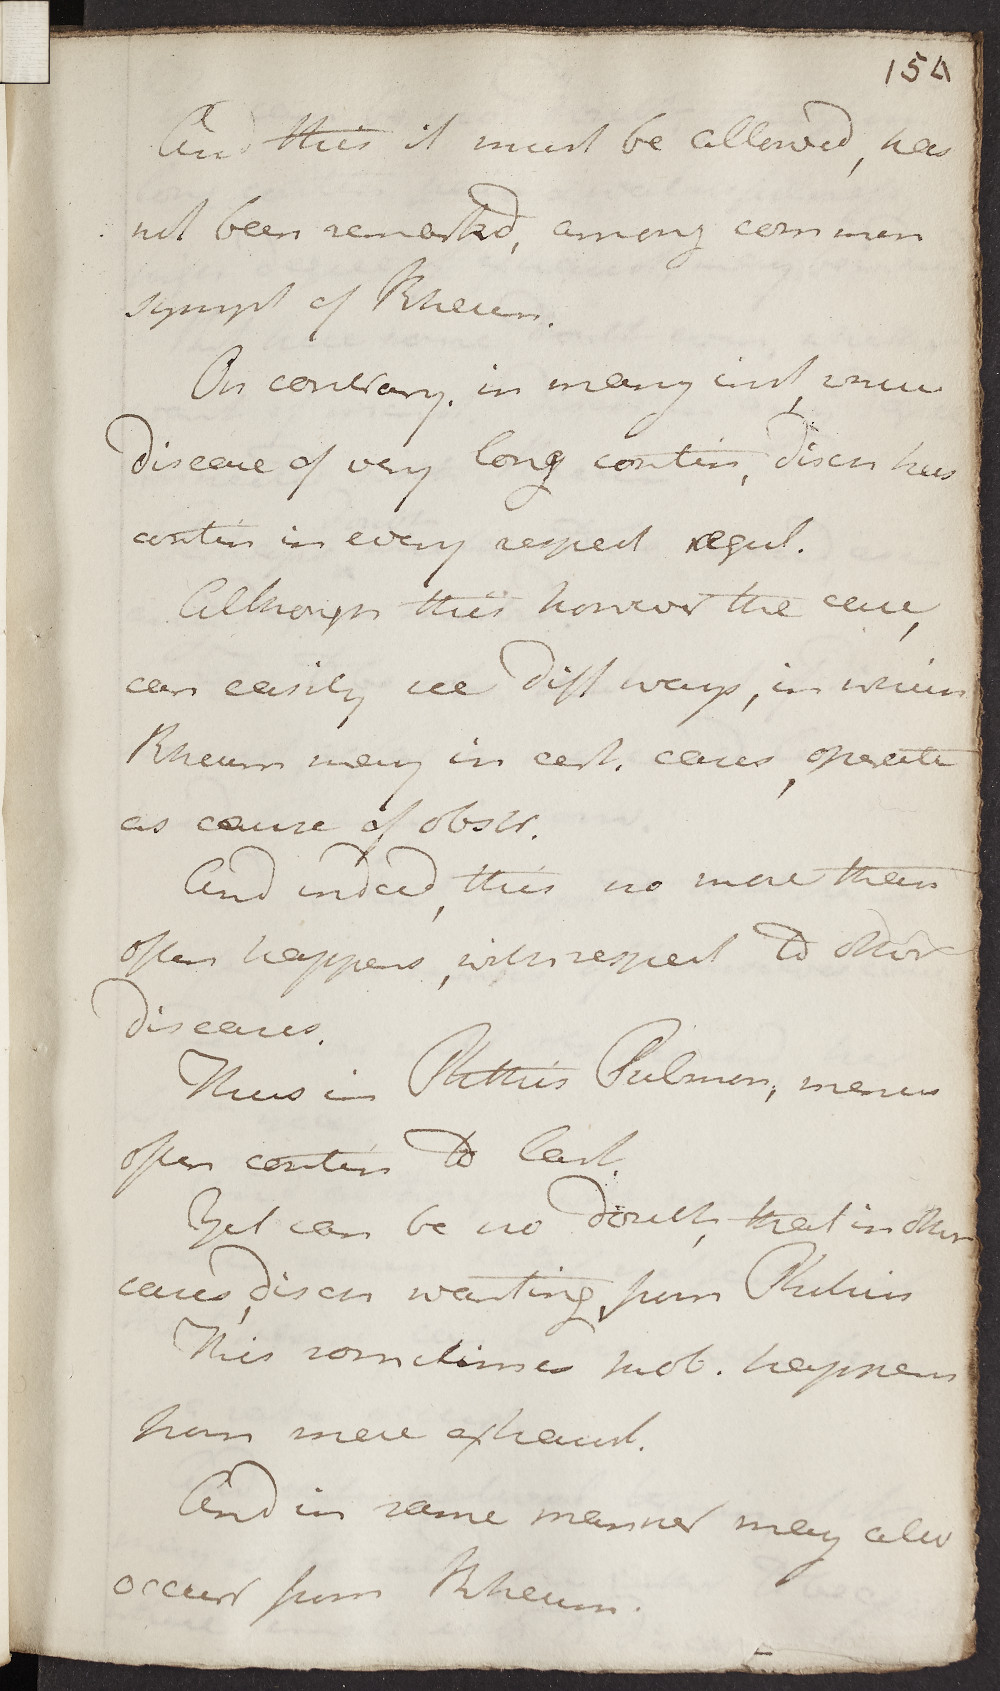 154
And this it must be allowed, has
not been remarkd, among common
sympt of Rheum.
On contrary. in many inst, where
disease of very long contin, disch has
contin in every respect regul.
Although this however the case,
can easily see diff ways, in which
Rheum may in cert. cases, operate
as cause of obstr.
And indeed, this no more than
often happens, with respect to other
diseases.
Thus in Phthis Pulmon, menses
often contin to last.
Yet can be no doubt, that in other
cases, disch wanting, from Phthisis
This sometimes prob. happens
from mere exhaust.
And in same manner may also
occur from Rheum.